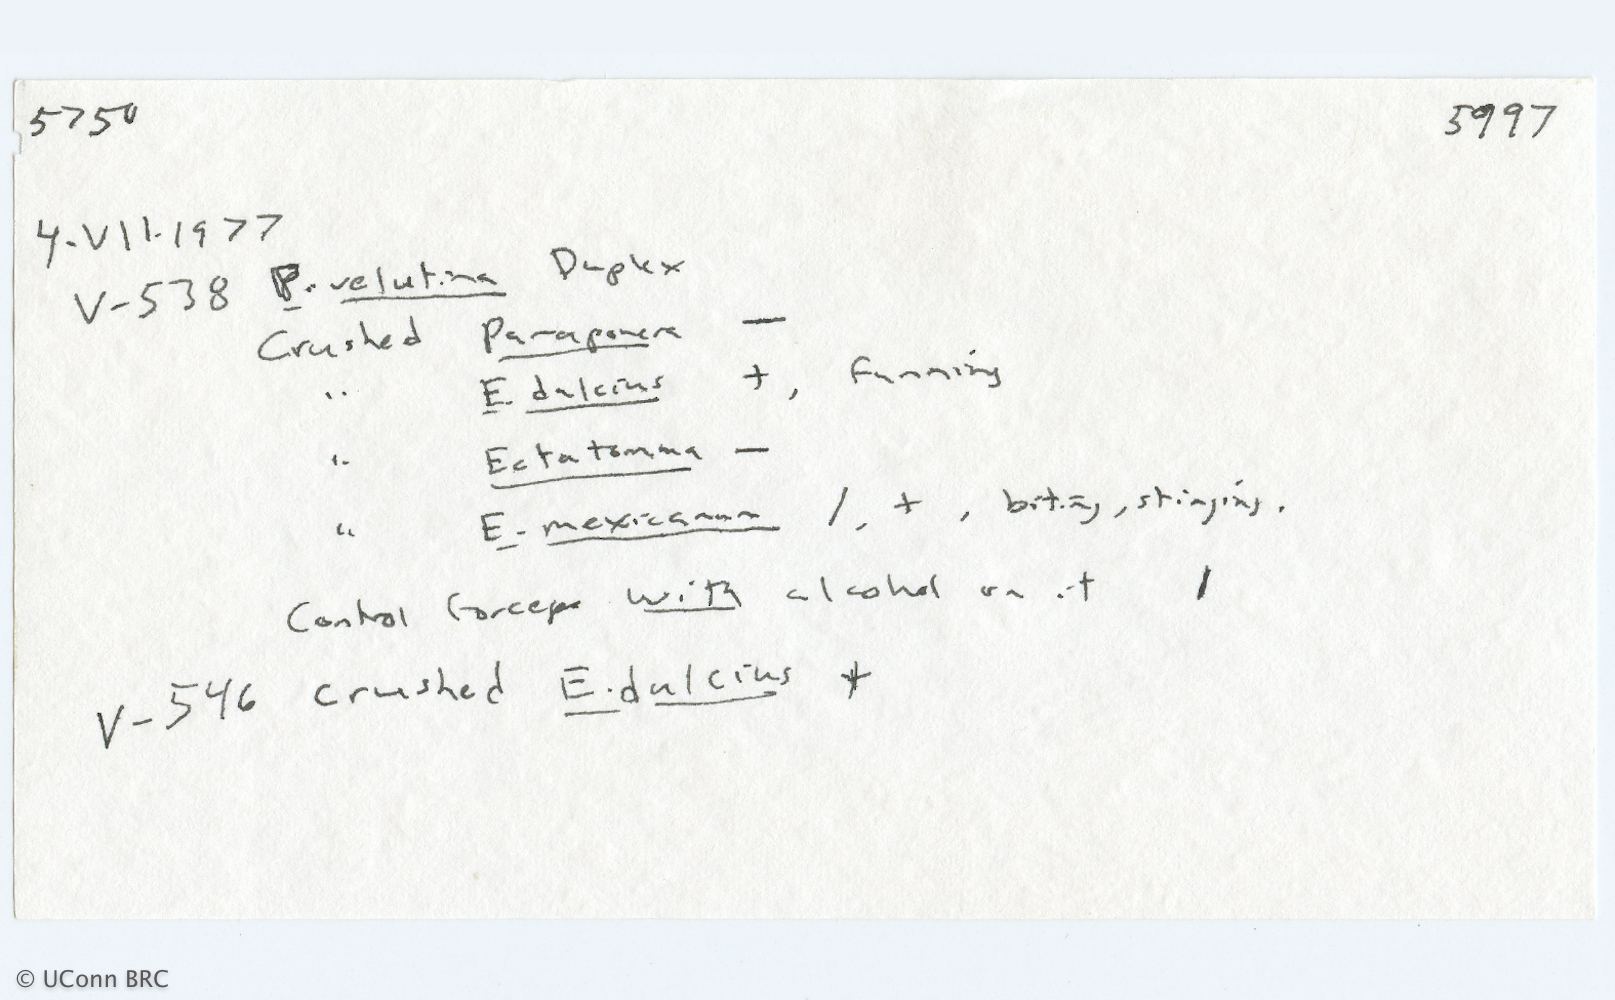 5750 5997
4.VII.1977
V-538 P. velutina Duplex
Crushed Paraponera —
" E. dulcius +, Fanning
" Ectatomma —
" E. mexicanum /, +, biting, stinging.
Control forceps with alcohol on it /
V-546 crushed E. dulcius +
© UConn BRC